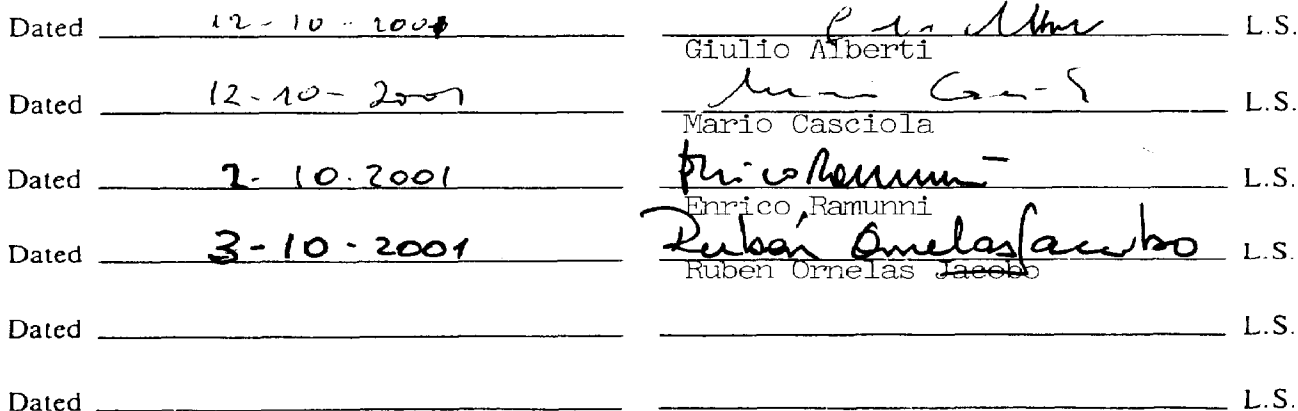 Dated 12-10-2001 L.S.
Giulio Alberti
Dated 12-10-2001 L.S.
Mario Casciola
Dated 2-10.2001 Enrico Ramunni L.S.
Enrico Ramunni
Dated 3-10-2001 Rubén Ornelas Jacobo L.S.
Ruben Ornelas Jacobo
Dated L.S.
Dated L.S.